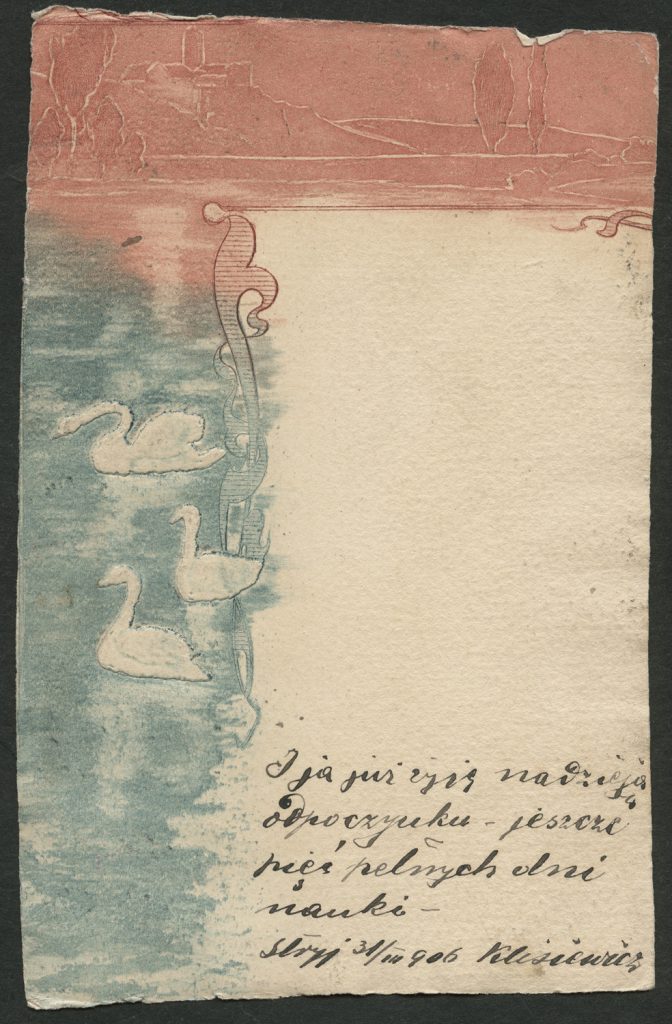 I ja już żyję nadzieją
odpoczynku - jeszcze
pięć pełnych dni
nauki -
Stryj 31/III 906 Klisiewicz